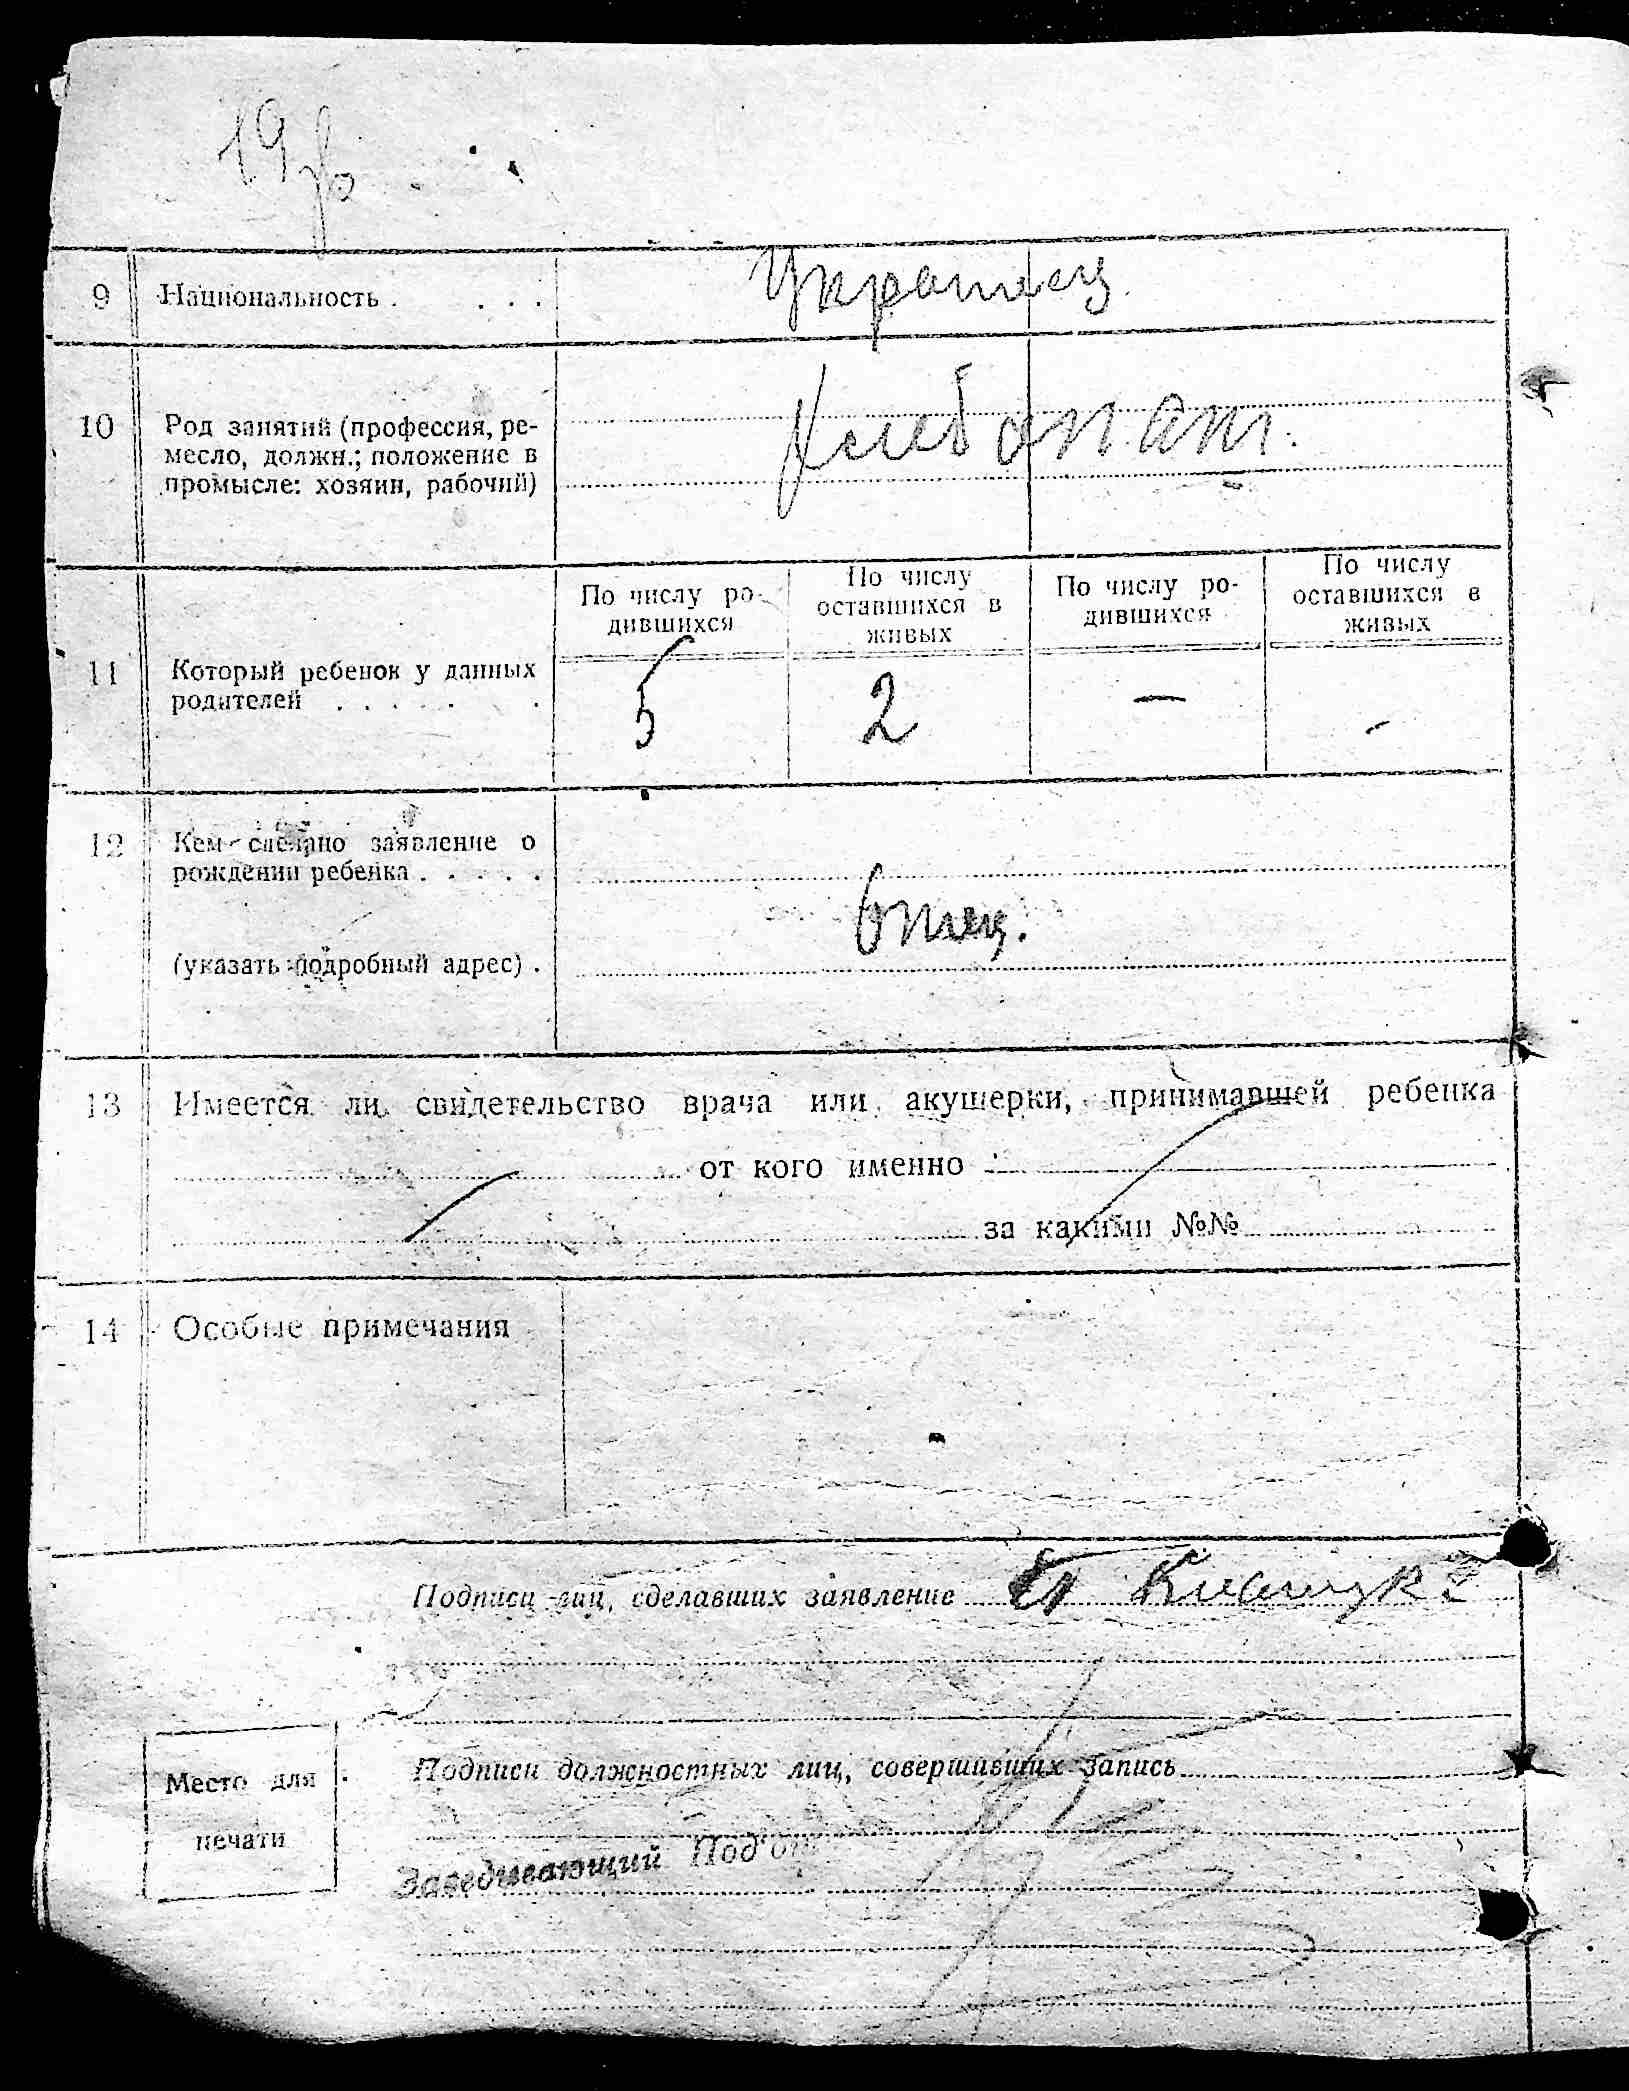 19
9 Национальность . . . . Украинец
10 Род занятий (профессия, ре-
месло, должн.; положение в
промысле: хозяин, рабочий)
Хлебопаш.
По числу ро-
дившихся
По числу
оставшихся в
живых
По числу ро-
дившихся
По числу
оставшихся в
живых
11 Который ребенок у данных
родителей . . . . . .
5 2 — -
12 Кем сделано заявление о
рождении ребенка . . . . .
Отец.
(указать подробный адрес) .
13 Имеется ли свидетельство врача или акушерки, принимавшей ребенка
от кого именно
за какими №№
14 Особые примечания
Подписи лиц, сделавших заявление
Место для
печати
Подписи должностных лиц, совершивших запись
Заведывающий Под'от